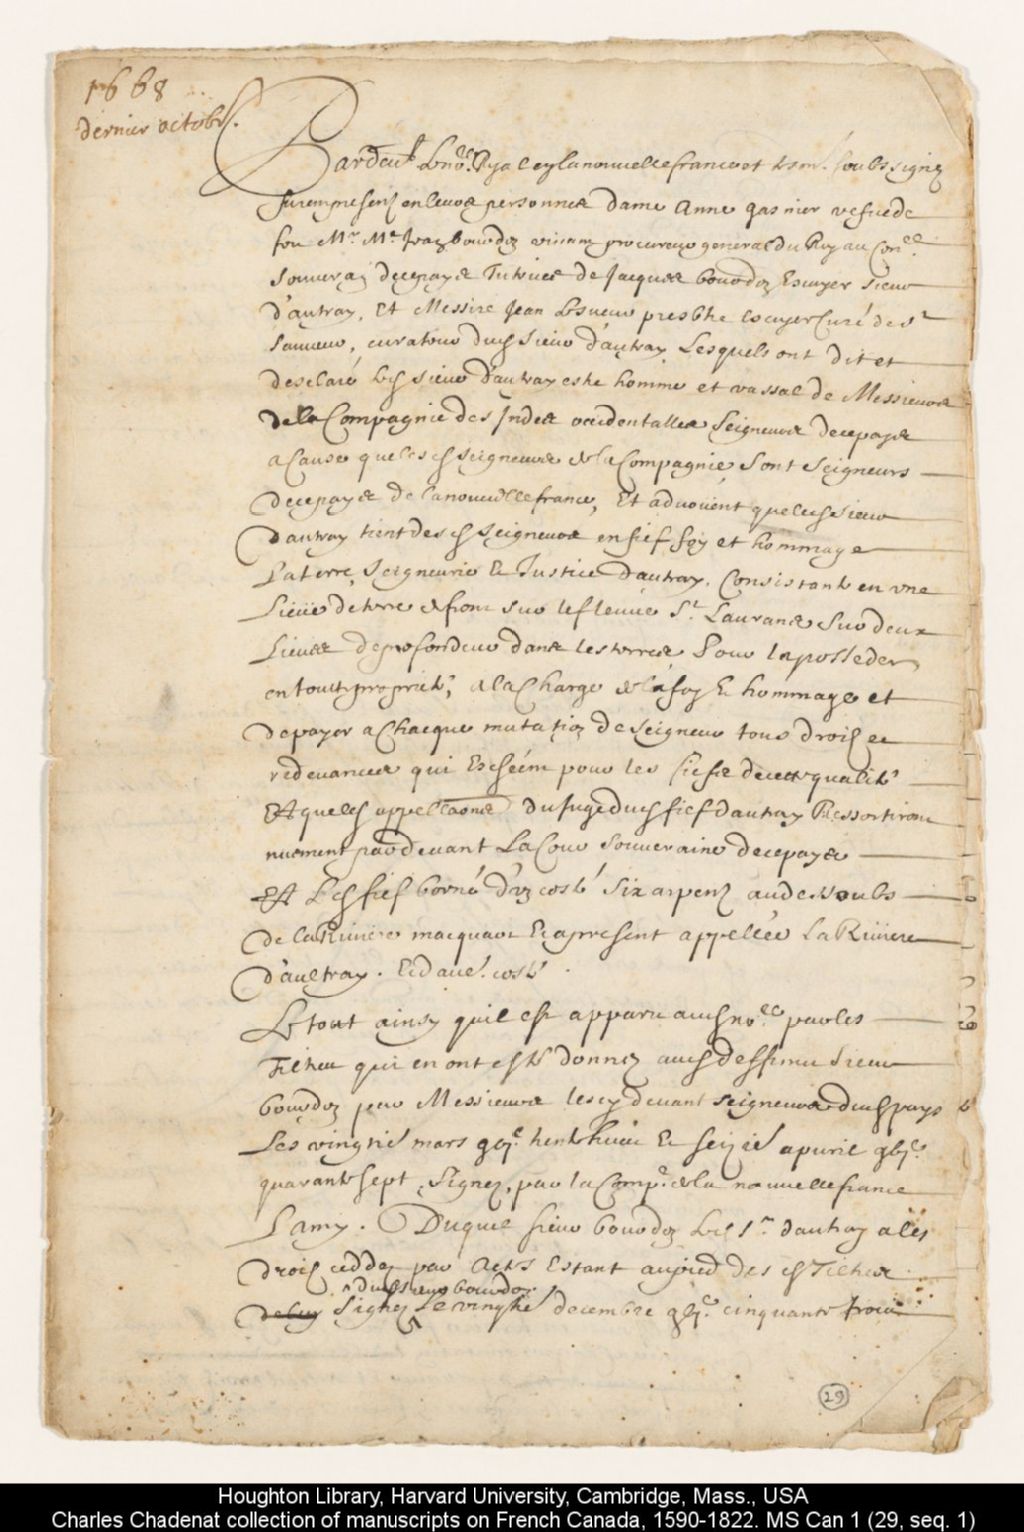 1668
dernier octobre.
Pardevt le nore Royal en la nouvelle france et tesm. soubsignez
furent presens en leurs personnes dame Anne gasnier vefve de
feu Mr Me Jean bourdon vivant procureur general du Roy au Conel
Souverain de ce pays Tutrice de Jacques bourdon Escuyer Sieur
d'autray, Et Messire Jean Lesueur presbtre escuyer Curé de St
Sauveur, curateur dud Sieur d'autray Lesquels ont dit et
desclaré led Sieur d'autray estre homme et vassal de Messieurs
de la Compagnie des Indes occidentalles Seigneurs de ce pays
a Cause que lesd Seigneurs de la Compagnie sont Seigneurs
de ce pays de la nouvelle france, Et advouent que led Sieur
dautray tient desd Seigneurs en fief foy et hommage
La terre, Seigneurie et Justice dautray. Consistant en une
Lieüe de terre de front sur le fleuve St. Laurans Sur deux
Lieues de profondeur dans les terres Pour la posseder
en toutte proprieté, a la Charge de la foy Et hommage et
de payer a Chacque mutation de Seigneur tous droits et
redevances qui Escheent pour les fiefs de cette qualité
Et que les appellaons du Juge dud fief dautray Ressortiront
nuement pardevant La Cour Souveraine de ce pays
Et Led fief borné d'un costé Six arpens au dessoubs
de la Riviere macquart Et a present appellée La Riviere
d'aultray. Et d'aue. costé
Le tout ainsy quil est apparu aud nore par les
Tiltres qui en ont esté donnez aud deffunct Sieur
bourdon par Messieurs les cy devant Seigneurs dud pays
Les vingtie mars gbjc trente huict Et Seizie apvril gbjc
quarante sept, Signez, par la Compe de la nouvelle france
Lamy. Duquel Sieur bourdon led Sr. dautray a les
droits ceddez par Acte Estant au pied desd Tiltres
^ dud Sieur bourdon
de luy Signez Le vingtie decembre gbjc. cinquante trois
29
Houghton Library, Harvard University, Cambridge, Mass., USA
Charles Chadenat collection of manuscripts on French Canada, 1590-1822. MS Can 1 (29, seq. 1)